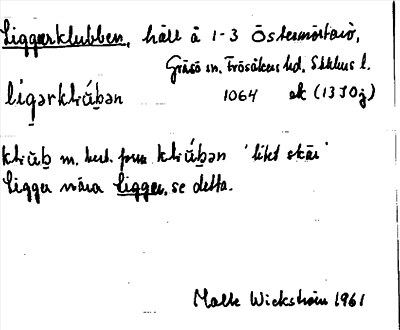 Liggarklubben, häll å 1-3 Östermörtarö,
Gräsö sn. Frösåkers hd. Sthlms l.
ligərklŭ́b̠ən 1064 ek (13 I 0 j)
klŭb̠ m. best. form klŭ́b̠ən 'litet skär'
Ligger nära Ligger, se detta.
Malte Wickström 1961